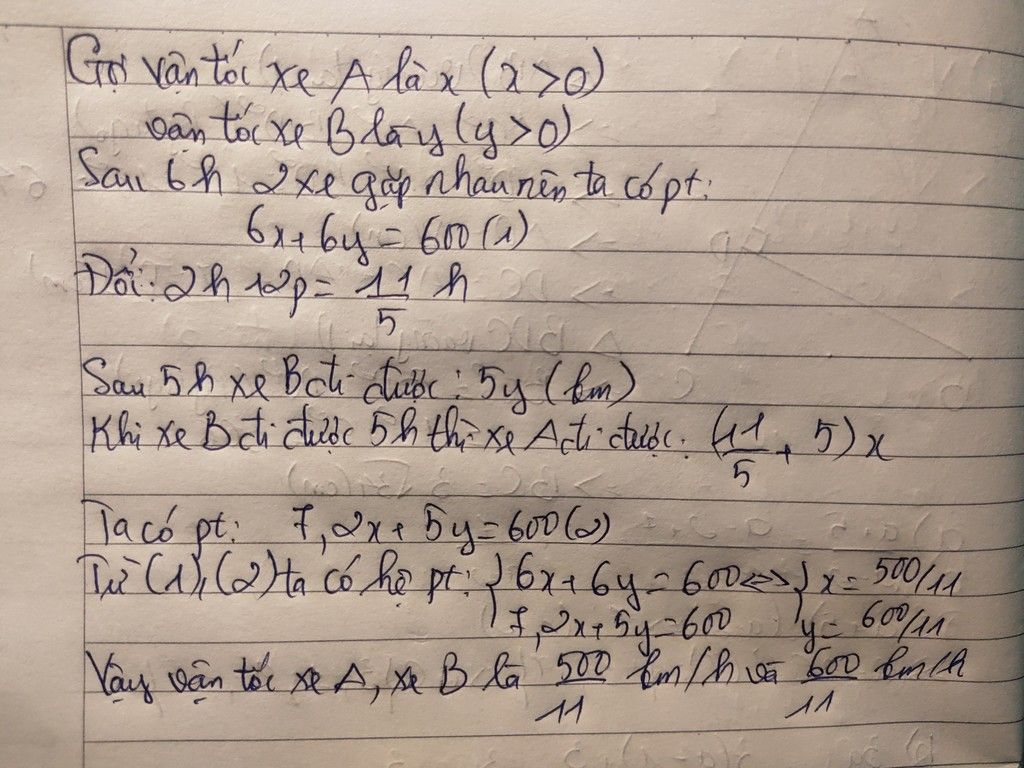 Gọi vận tốc xe A là x (x>0)
vận tốc xe B là y (y>0)
Sau 6h 2 xe gặp nhau nên ta có pt:
6x+6y = 600 (1)
Đổi: 2h 12p = 11/5 h
Sau 5h xe B đi được: 5y (km)
Khi xe B đi được 5h thì xe A đi được: (11/5 + 5) x
Ta có pt: 7,2x + 5y = 600 (2)
Từ (1), (2) ta có hệ pt: { 6x+6y = 600 <=> { x = 500/11
7,2x+5y = 600 y = 600/11
Vậy vận tốc xe A, xe B là 500/11 km/h và 600/11 km/h